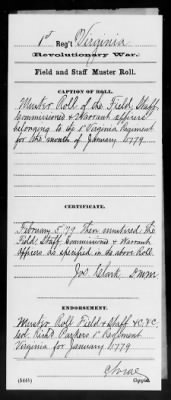 1st Reg't Virginia
Revolutionary War.
Field and Staff Muster Roll.
CAPTION OF ROLL.
Muster Roll of the Field, Staff,
Commissioned & Warrant officers
belonging to the 1 Virginia Regiment
for the month of January 1779.
CERTIFICATE.
February 5, 79 Then mustered the
Field, Staff, Commissioned & Warrant
Officers as specified in the above Roll.
Jos. Clark, D M M
ENDORSEMENT.
Muster Roll Field & Staff &C. &C.
Col. Rich'd Parkers 1st Regiment
Virginia for January 1779
Copyist.